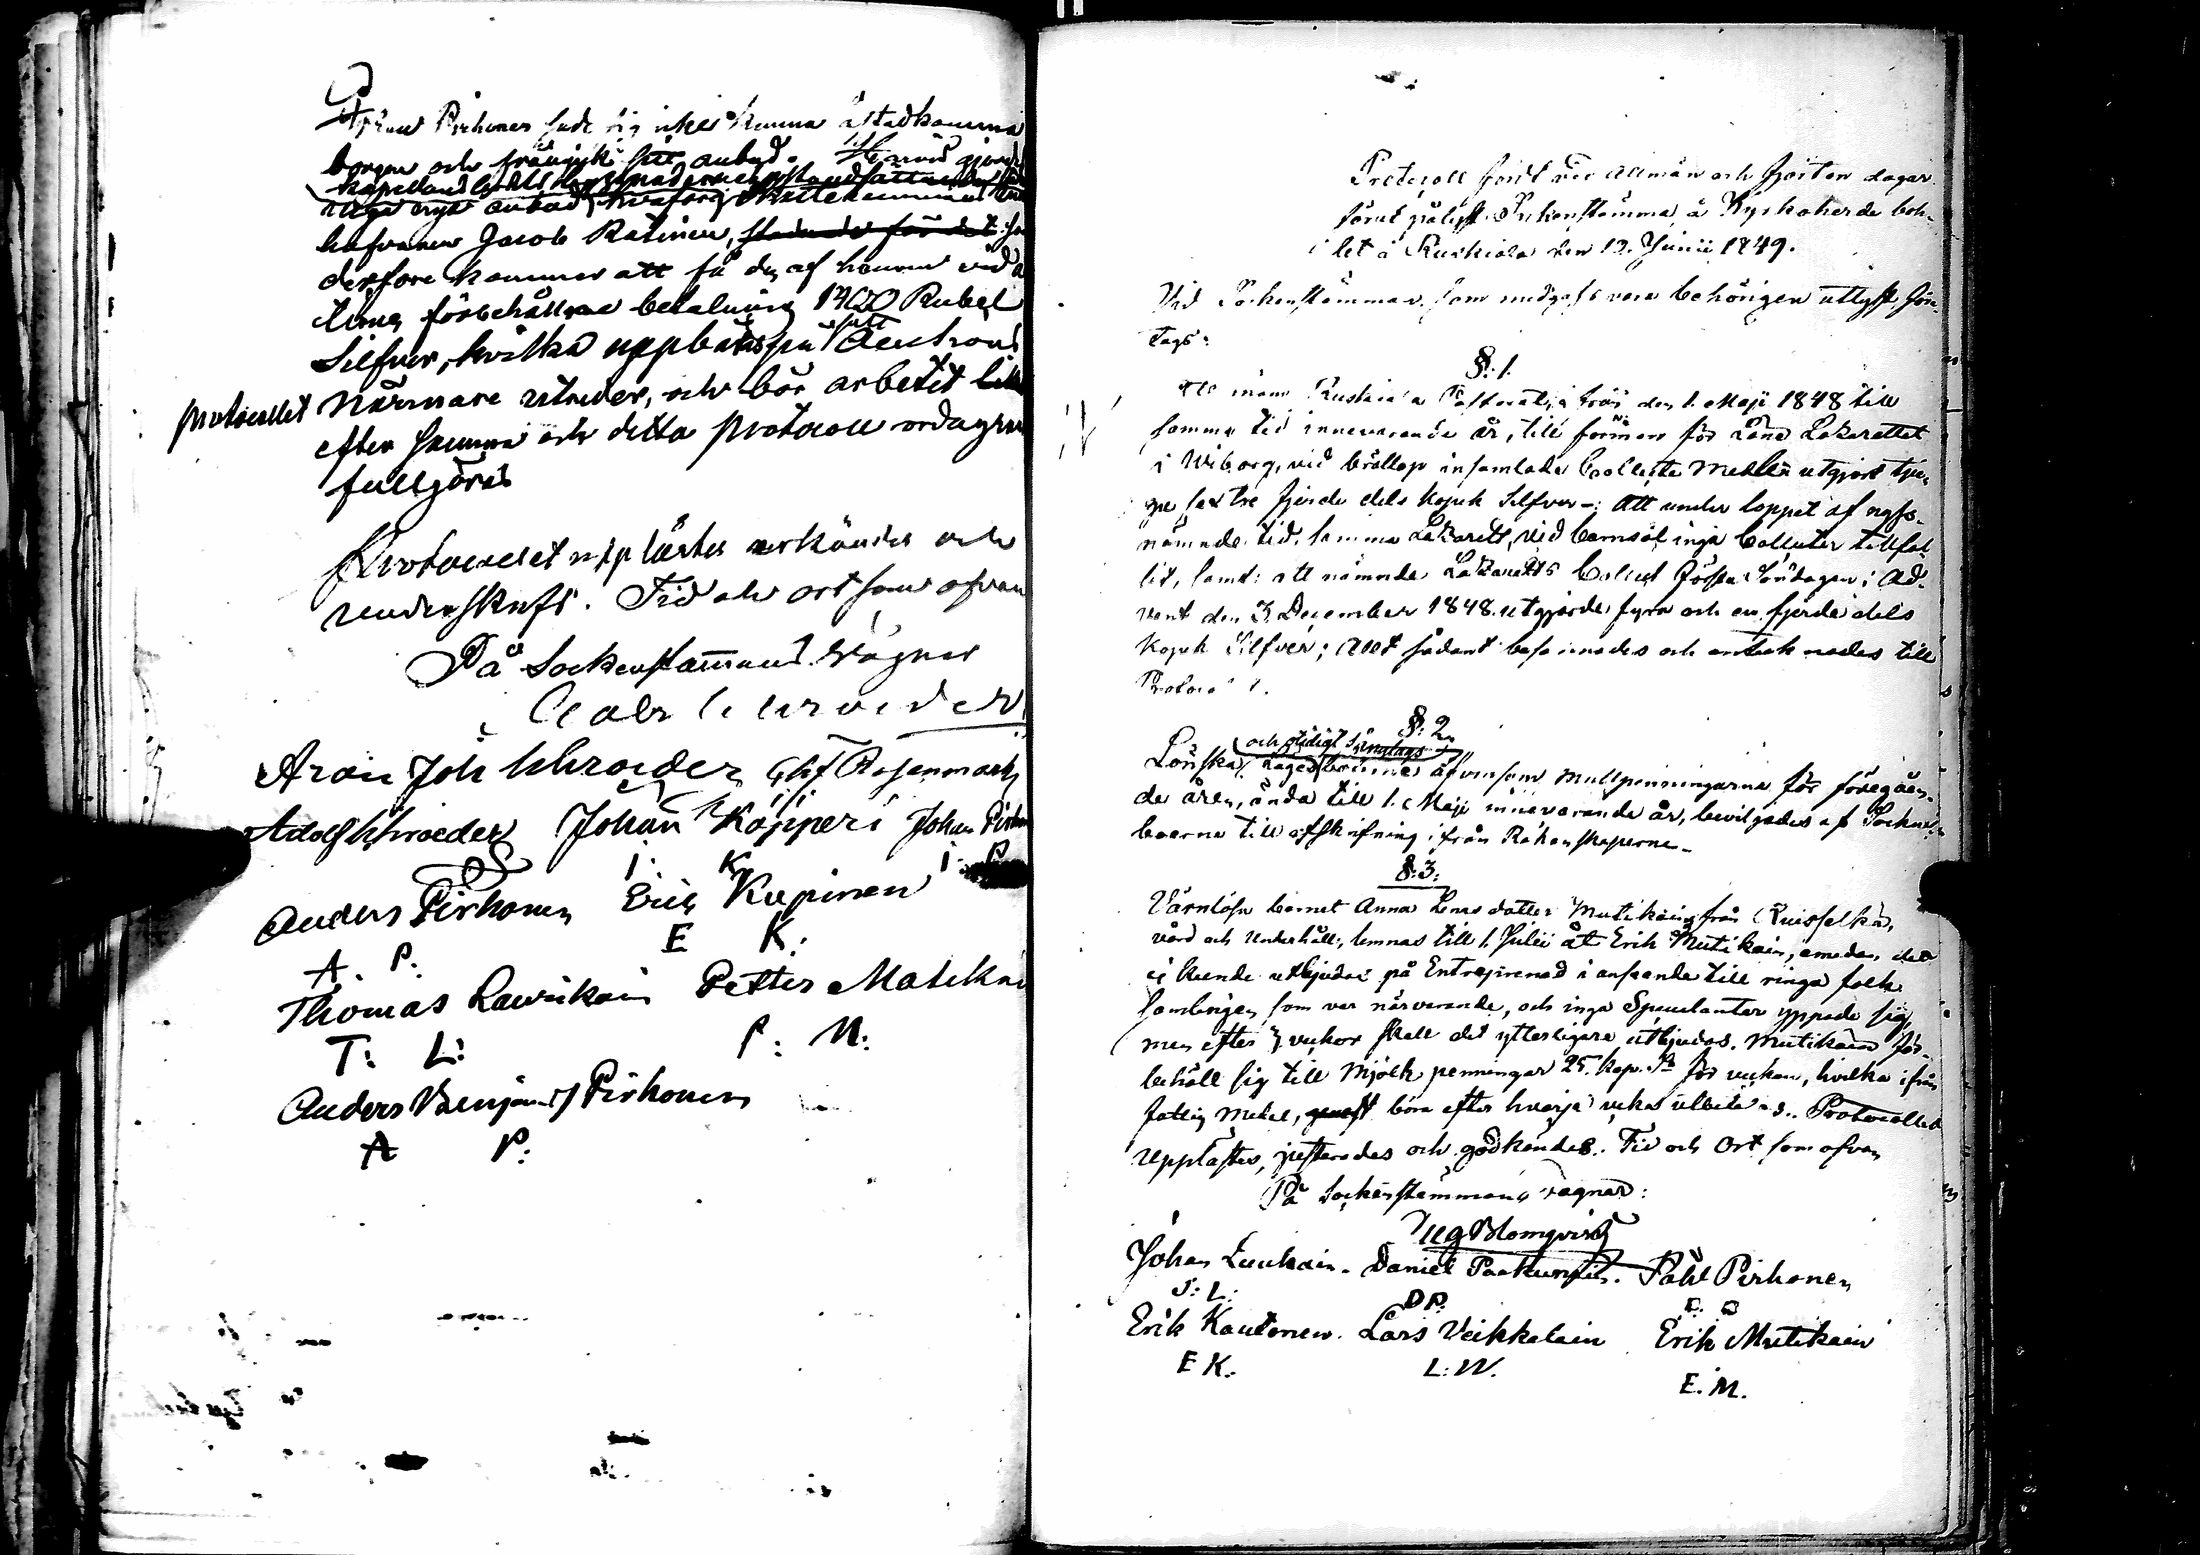 Pirhonen sade sig icke kunna åstadkomma
borgen och frångick sitt anbud.
inga nya anbud, hvarföre
hafvanen Jacob Ratinen, stadnade för det
derföre kommer att få dej af honom vid
tima förbehållna betalning 1400 Rubel
Silfver, hvilka uppbäras på sätt Auctions
protocollet närmare utreder, och bör arbetet
efter samma och detta protocoll ordagrant
fullgöras
Protocollet uppläster erkändes och
underskrefs. Tid och ort som ofvan
På Sockenstämmans vägnar
Aron Joh Schroeder Ghf Rosenmark
Adolf Schroeder Johan Köpperi Johan
I K I P
Anders Pirhonen Eric Kupinen
A. P. E K:
Thomas Laurikain Petter Mutikai
T: L: P: M:
Anders Benjams Pirhonen
A P:
Protocoll fördt vid Allmän och fjorton dagar
förut pålyst Sockenstämma å Kyrkoherde bohl
let i Ruskiala den 13. Junii 1849.
Vid Sockenstämman, som medgafs vara behörigen utlyst före-
togs:
§: 1.
Att inom Ruskiala Pastorat, ifrån den 1. Maji 1848 till
samma tid innevarande år, till förmon för Läns Lazarettet
i Wiborg, vid bröllop insamlade Collecte Medlen utgjort tju-
go sex tre fjerde dels Kopek Silfver -; Att under loppet af nyss-
nämnde tid, samma Lazarett, vid barnsöl inga Collecter tillfal-
lit, samt: att nämnde Lazaretts Collect Första Söndagen i Ad-
vent den 3. December 1848. utgjorde fyra och en fjerde dels
Kopek Silfver; Allt sådant besannades och antecknades till
Protocoll.
§: 2.
och otidigt Sänglags
Lönska Lägersböterne äfvensom Mullpenningarne för föregåen-
de åren, ända till 1. Maji innevarande år, beviljades af Socken-
boerne till afskrifning ifrån Räkenskaperne.
§: 3:
Värnlösa barnet Anna Larsdotter Mutikain från Ruisselkä,
vård och Underhåll, lemnas till 1. Julii åt Erik Mutikain, emedan det
ei kunde utbjudas på Entreprenad i anseende till ringa folk
samlingen som var närvarande, och inga Speculanter yppade sig,
men efter 3 veckor skall det ytterligare utbjudas. Mutikain för-
behöll sig till Mjölk penningar 25. Kop. Sr för veckan, hvilka ifrån
fattig Medel, genast böra efter hvarje vecka utbetalas. Protocollet
Upplästes, justerades och godkändes. Tid och Ort som ofvan
På Sockenstämmans vägnar:
Aug Blomqvist
Johan Luukain. Daniel Paakunain. Påhl Pirhonen
J: L: D P: P. P
Erik Kautonen. Lars Veikkolain Erik Mutikain
E K. L: W. E. M.